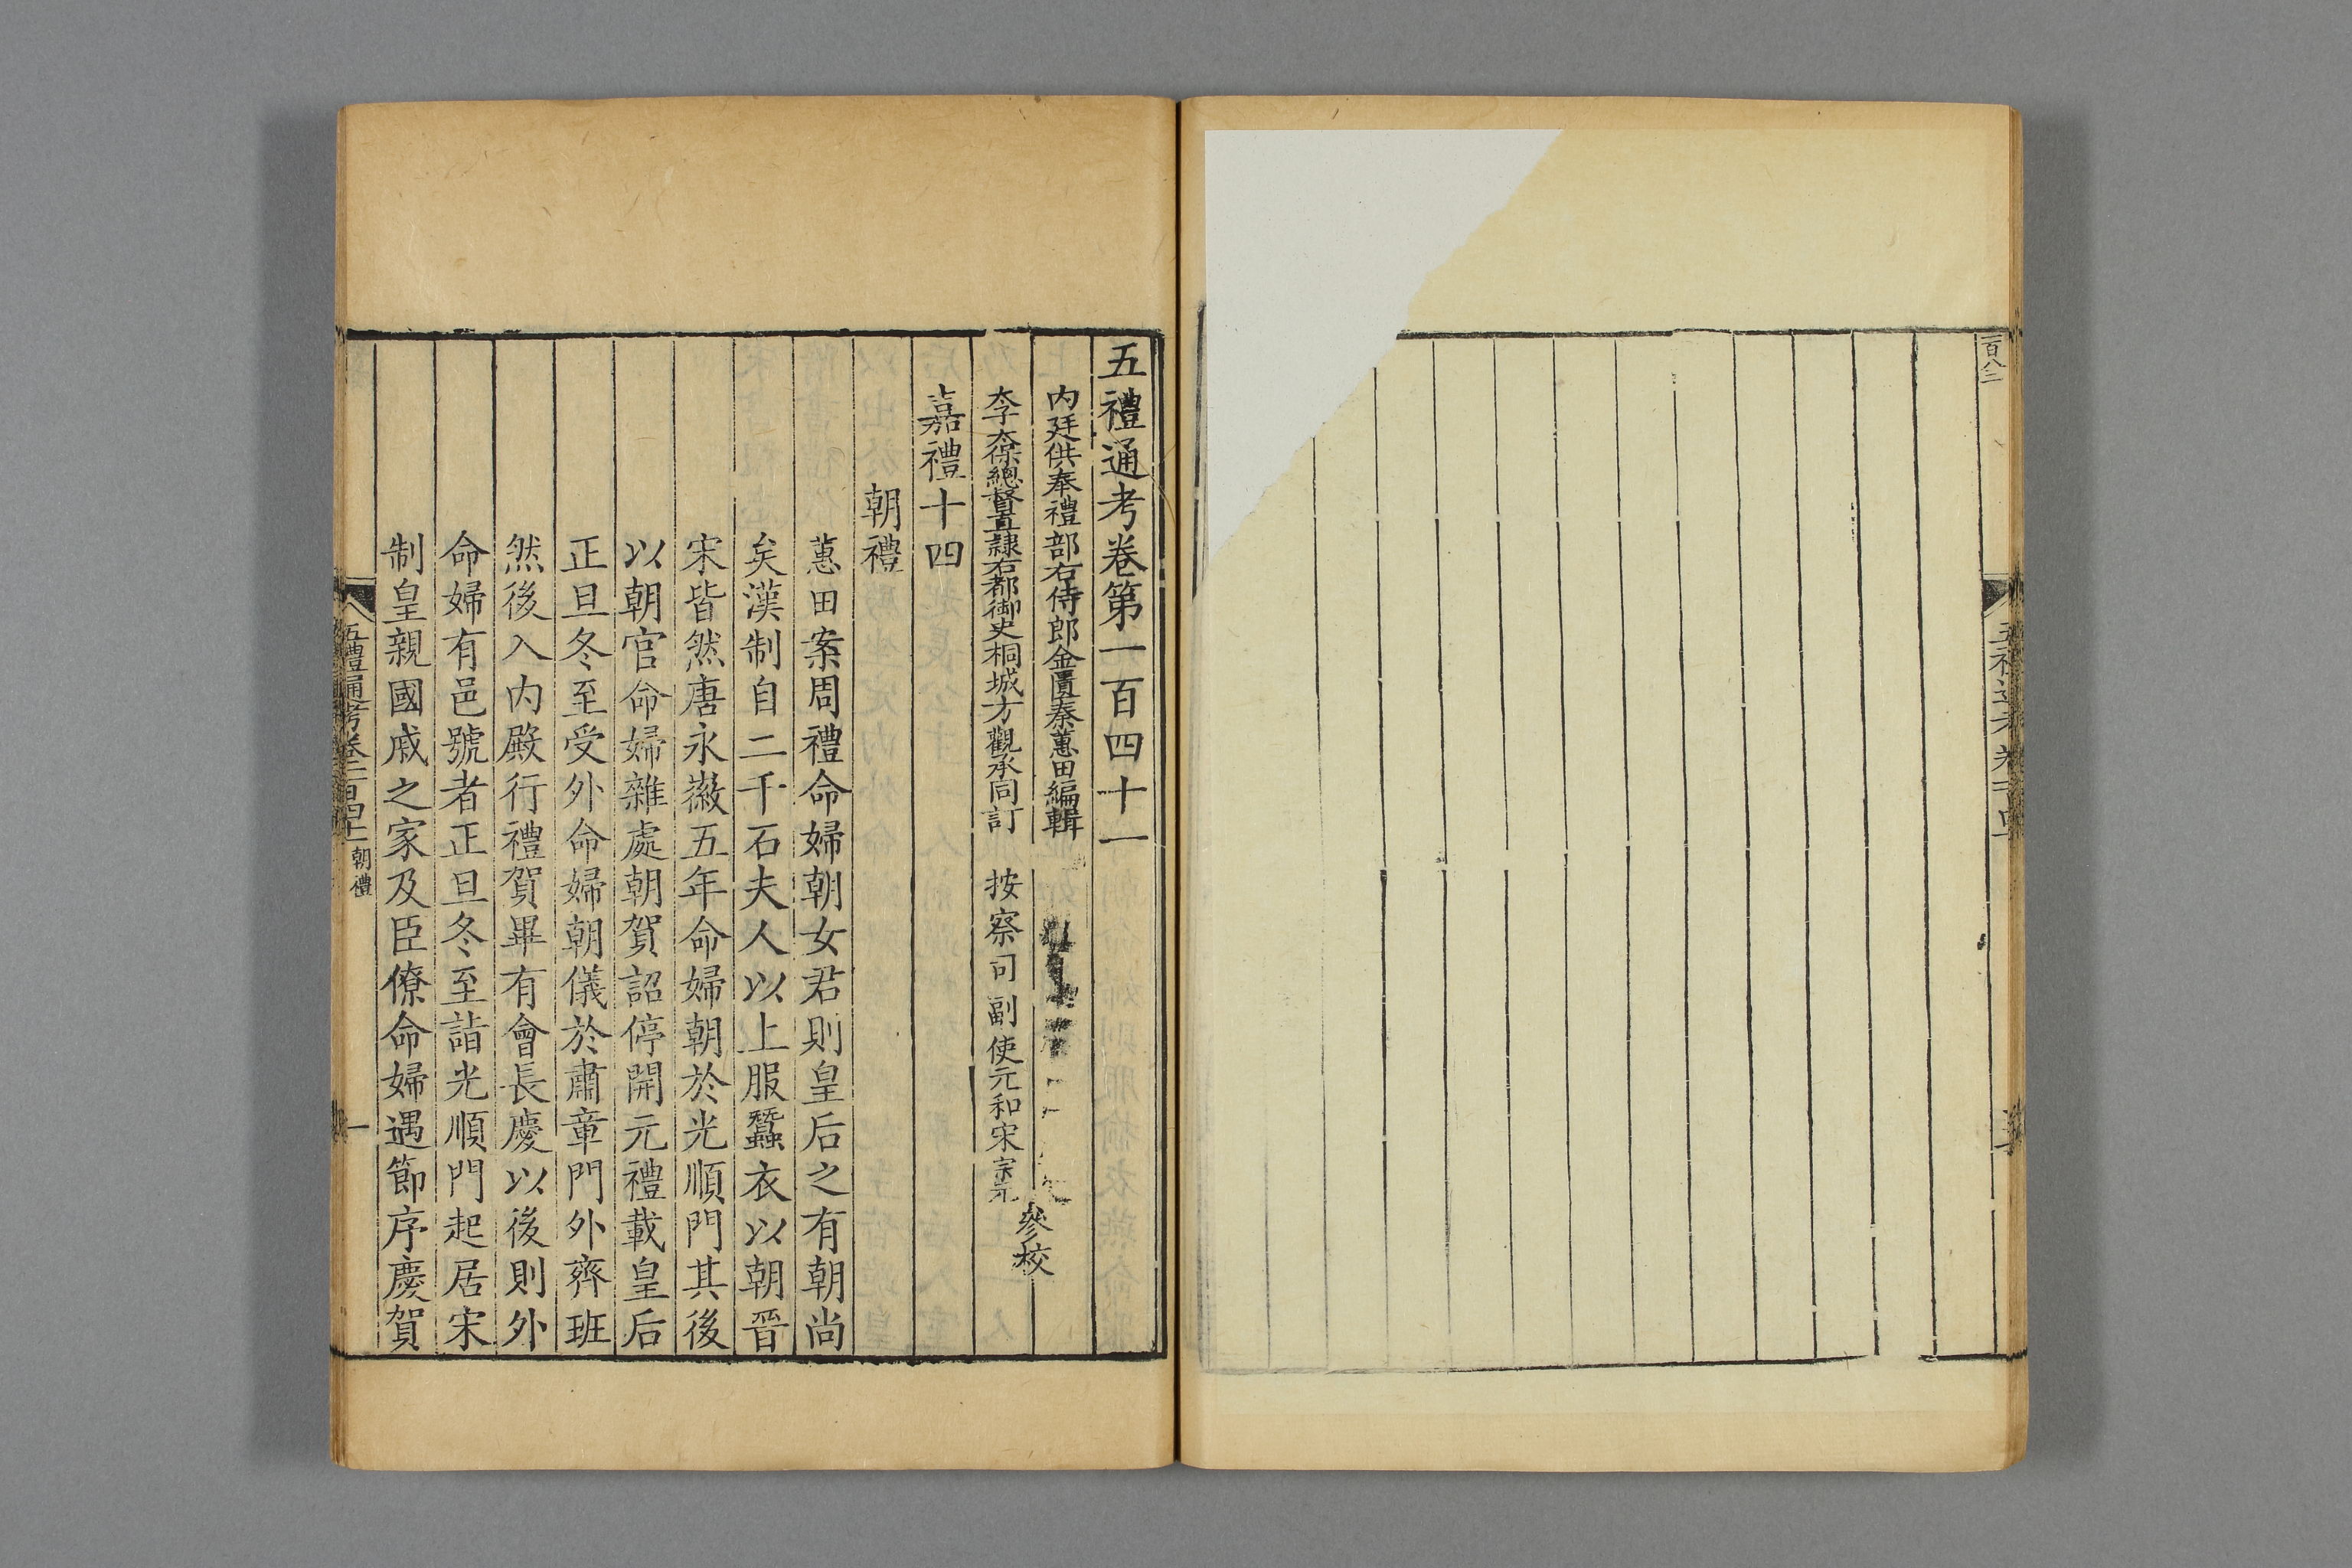 一百八二
五禮通考卷第一百四十一
內廷供奉禮部右侍郎金匱秦蕙田編輯
太子太保總督直隸右都御史桐城方觀承同訂
按察司副使元和宋宗元
參校
嘉禮十四
朝禮
蕙田案周禮命婦朝女君則皇后之有朝尚
矣漢制自二千石夫人以上服蠶衣以朝晉
宋皆然唐永徽五年命婦朝於光順門其後
以朝官命婦雜處朝賀詔停開元禮載皇后
正旦冬至受外命婦朝儀於肅章門外齊班
然後入內殿行禮賀畢有會長慶以後則外
命婦有邑號者正旦冬至詣光順門起居宋
制皇親國戚之家及臣僚命婦遇節序慶賀
五禮通考卷一百四十一
朝禮
一